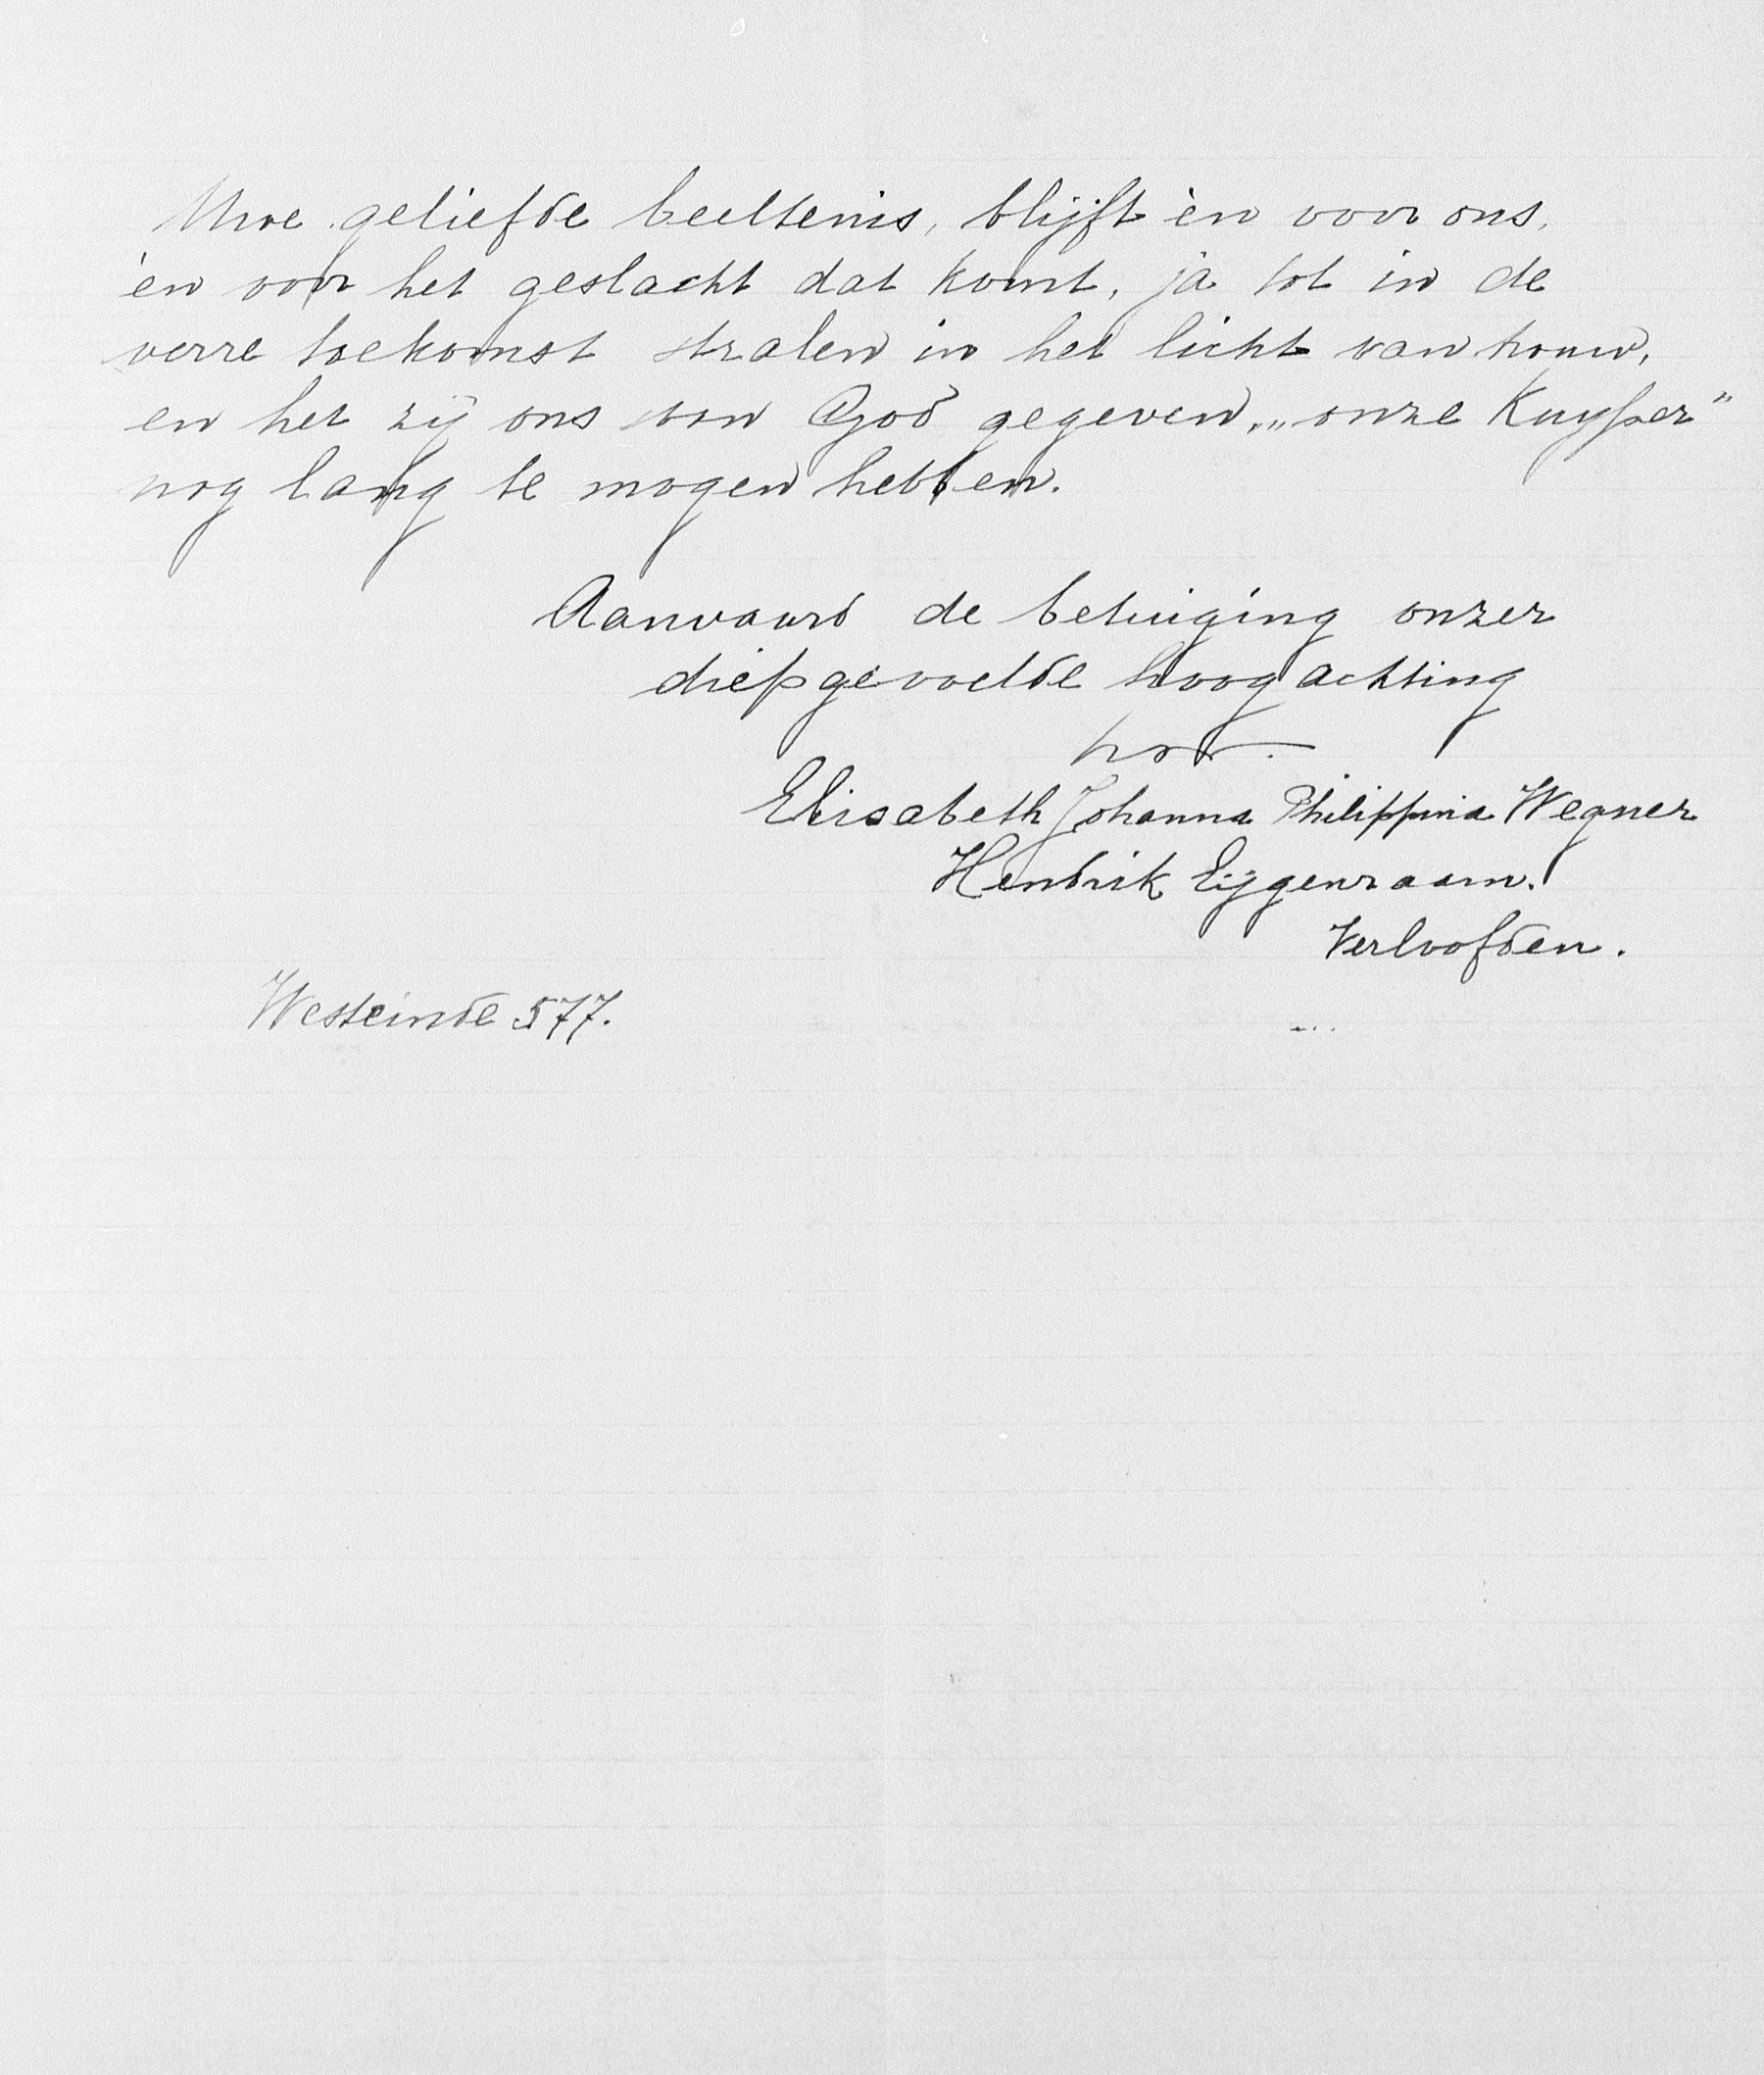 Uwe geliefde beeltenis, blijft èn voor ons,
èn voor het geslacht dat komt, ja tot in de
verre toekomst stralen in het licht van trouw,
en het zij ons van God gegeven, „onze Kuyper”
nog lang te mogen hebben.
Aanvaard de betuiging onzer
diepgevoelde hoogachting
Elisabeth Johanna Philippina Wegner
Hendrik Eijgenraam.
Verloofden.
Westeinde 577.